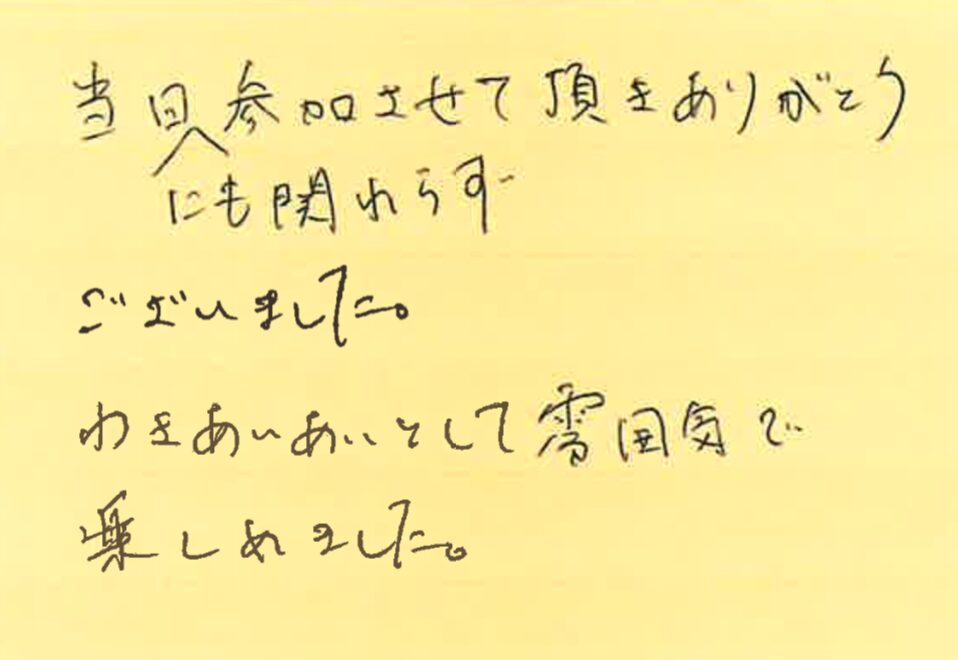 当日参加させて頂きありがとう
にも関わらず
ございました。
わきあいあいとして雰囲気で
楽しめました。